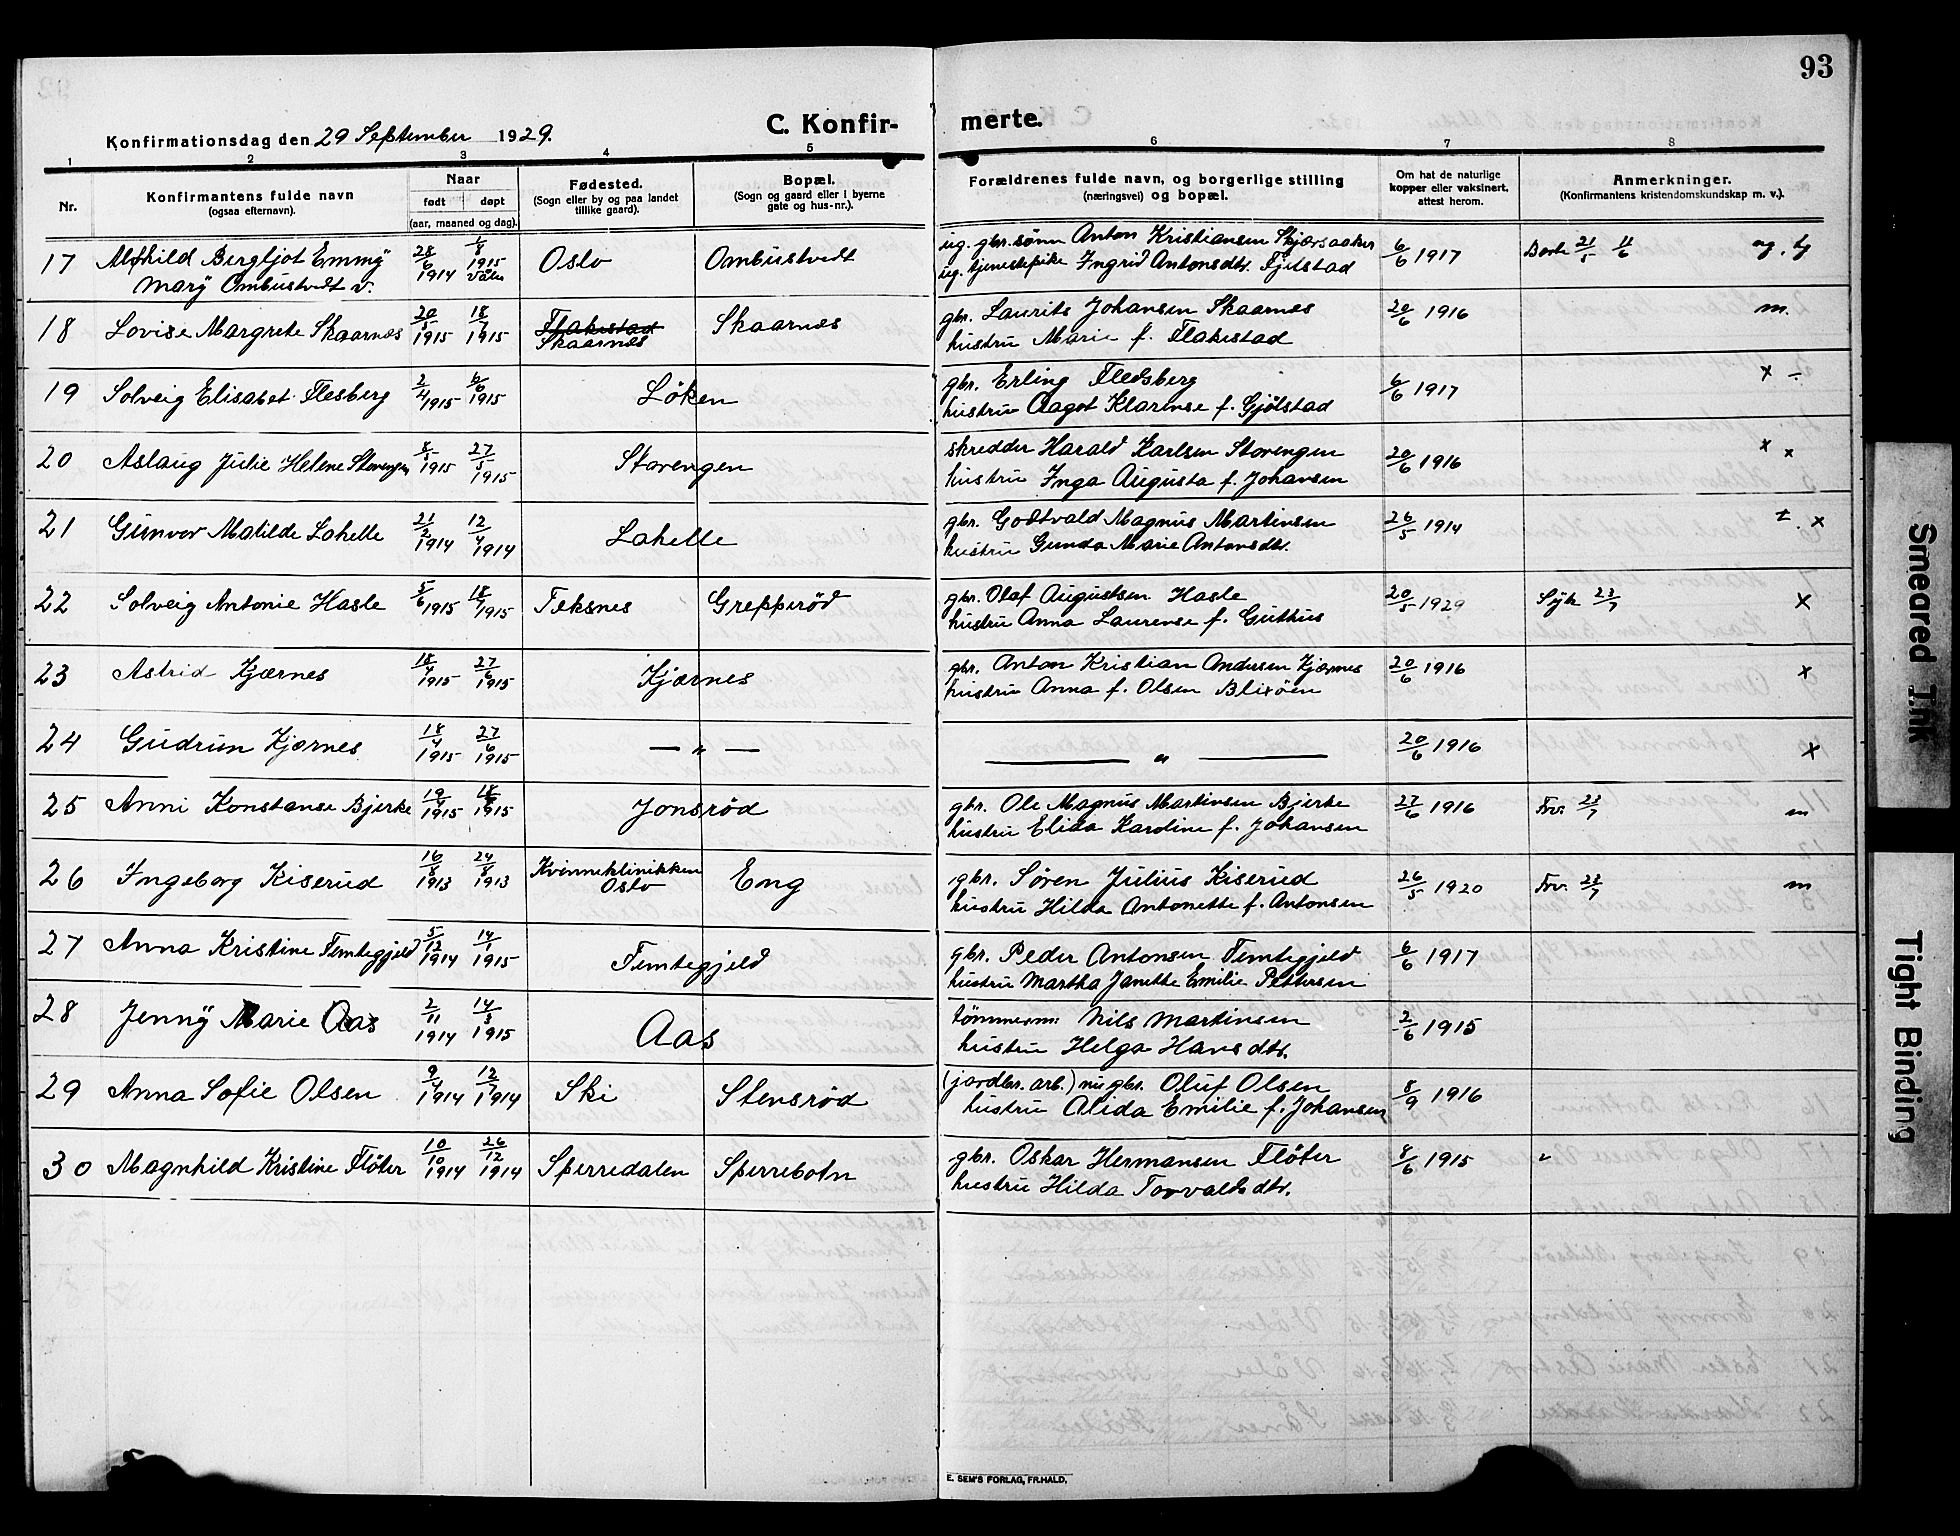 93
Konfirmationsdag den 29 September 1929.
C. Konfirmerte.
1 2 3 4 5 6 7 8
Nr.
Konfirmantens fulde navn
(ogsaa efternavn).
Naar
født døpt
(aar, maaned og dag).
Fødested.
(Sogn eller by og paa landet
tillike gaard).
Bopæl.
(Sogn og gaard eller i byerne
gate og hus-nr.).
Forældrenes fulde navn, og borgerlige stilling
(næringsvei) og bopæl.
Om hat de naturlige
kopper eller vaksinert,
attest herom.
Anmerkninger.
(Konfirmantens kristendomskundskap m. v.).
17 Alfhild Bergljot Emmy 28/6 1914 1/8 1915 Våler Oslo Ombustvedt ug. gbr.sønn Anton Kristiansen Skjærsaaker 6/6 1917 Borte 21/5 11/6
Mary Ombustvedt v. ug. tjenestepike Ingrid Antonsdtr. Fjelstad
18 Lovise Margrete Skaarnes 20/5 1915 18/7 1915 Flakestad Skaarnes gbr. Laurits Johansen Skaarnes 20/6 1916 m.
Skaarnes hustru Marie f. Flakestad
19 Solveig Elisabet Flesberg 2/4 1915 6/6 1915 Löken gbr. Erling Fledsberg 6/6 1917 x ÷
hustru Aagot Klarense f. Gjölstad
20 Aslaug Julie Helene Storengen 8/5 1915 27/5 1915 Storengen skredder Harald Karlsen Storengen 20/6 1916 x x
hustru Inga Augusta f. Johansen
21 Gunvor Matilde Lahelle 21/2 1914 12/4 1914 Lahelle gbr. Godtvald Magnus Martinsen 26/5 1914 ± . x
hustru Gunda Marie Antonsdtr.
22 Solveig Antonie Hasle 5/6 1915 18/7 1915 Teksnes Grepperöd gbr. Olaf Augustsen Hasle 20/5 1929 Syk 23/7 x
hustru Anna Laurense f. Guthus
23 Astrid Kjærnes 18/4 1915 27/6 1915 Kjærnes gbr. Anton Kristian Andersen Kjærnes 20/6 1916 x
hustru Anna f. Olsen Blixöen
24 Gudrun Kjærnes 18/4 1915 27/6 1915 — " — — " — 20/6 1916 x
25 Anni Konstanse Bjerke 19/4 1915 18/7 1915 Jonsröd gbr. Ole Magnus Martinsen Bjerke 27/6 1916 Frv. 23/7 m
hustru Elida Kardine f. Johansen
26 Ingeborg Kiserud 16/8 1913 24/8 1913 Kvinneklinikken Eng gbr. Sören Julius Kiserud 26/5 1920 Frv. 23/7 m
Oslo hustru Hilda Antonette f. Antonsen
27 Anna Kristine Temtegjeld 5/12 1914 14/1 1915 Temtegjeld gbr. Peder Antonsen Temtegjeld 6/6 1917
hustru Martha Janette Emilie Pettersen
28 Jenny Marie Aas 2/11 1914 14/3 1915 Aas tömmerm. Nils Martinsen 2/6 1915
hustru Helga Hansdtr.
29 Anna Sofie Olsen 9/4 1914 12/7 1914 Ski Stensröd (jordbr. arb.) nu gbr. Oluf Olsen 8/9 1916
hustru Alida Emilie f. Johansen
30 Magnhild Kristine Flöter 10/10 1914 26/12 1914 Sperredalen Sperrebotn gbr. Oskar Hermansen Flöter 8/6 1915
hustru Hilda Torvaldsdtr.
E. SEM'S FORLAG, FR.HALD.
Smeared Ink
Tight Binding